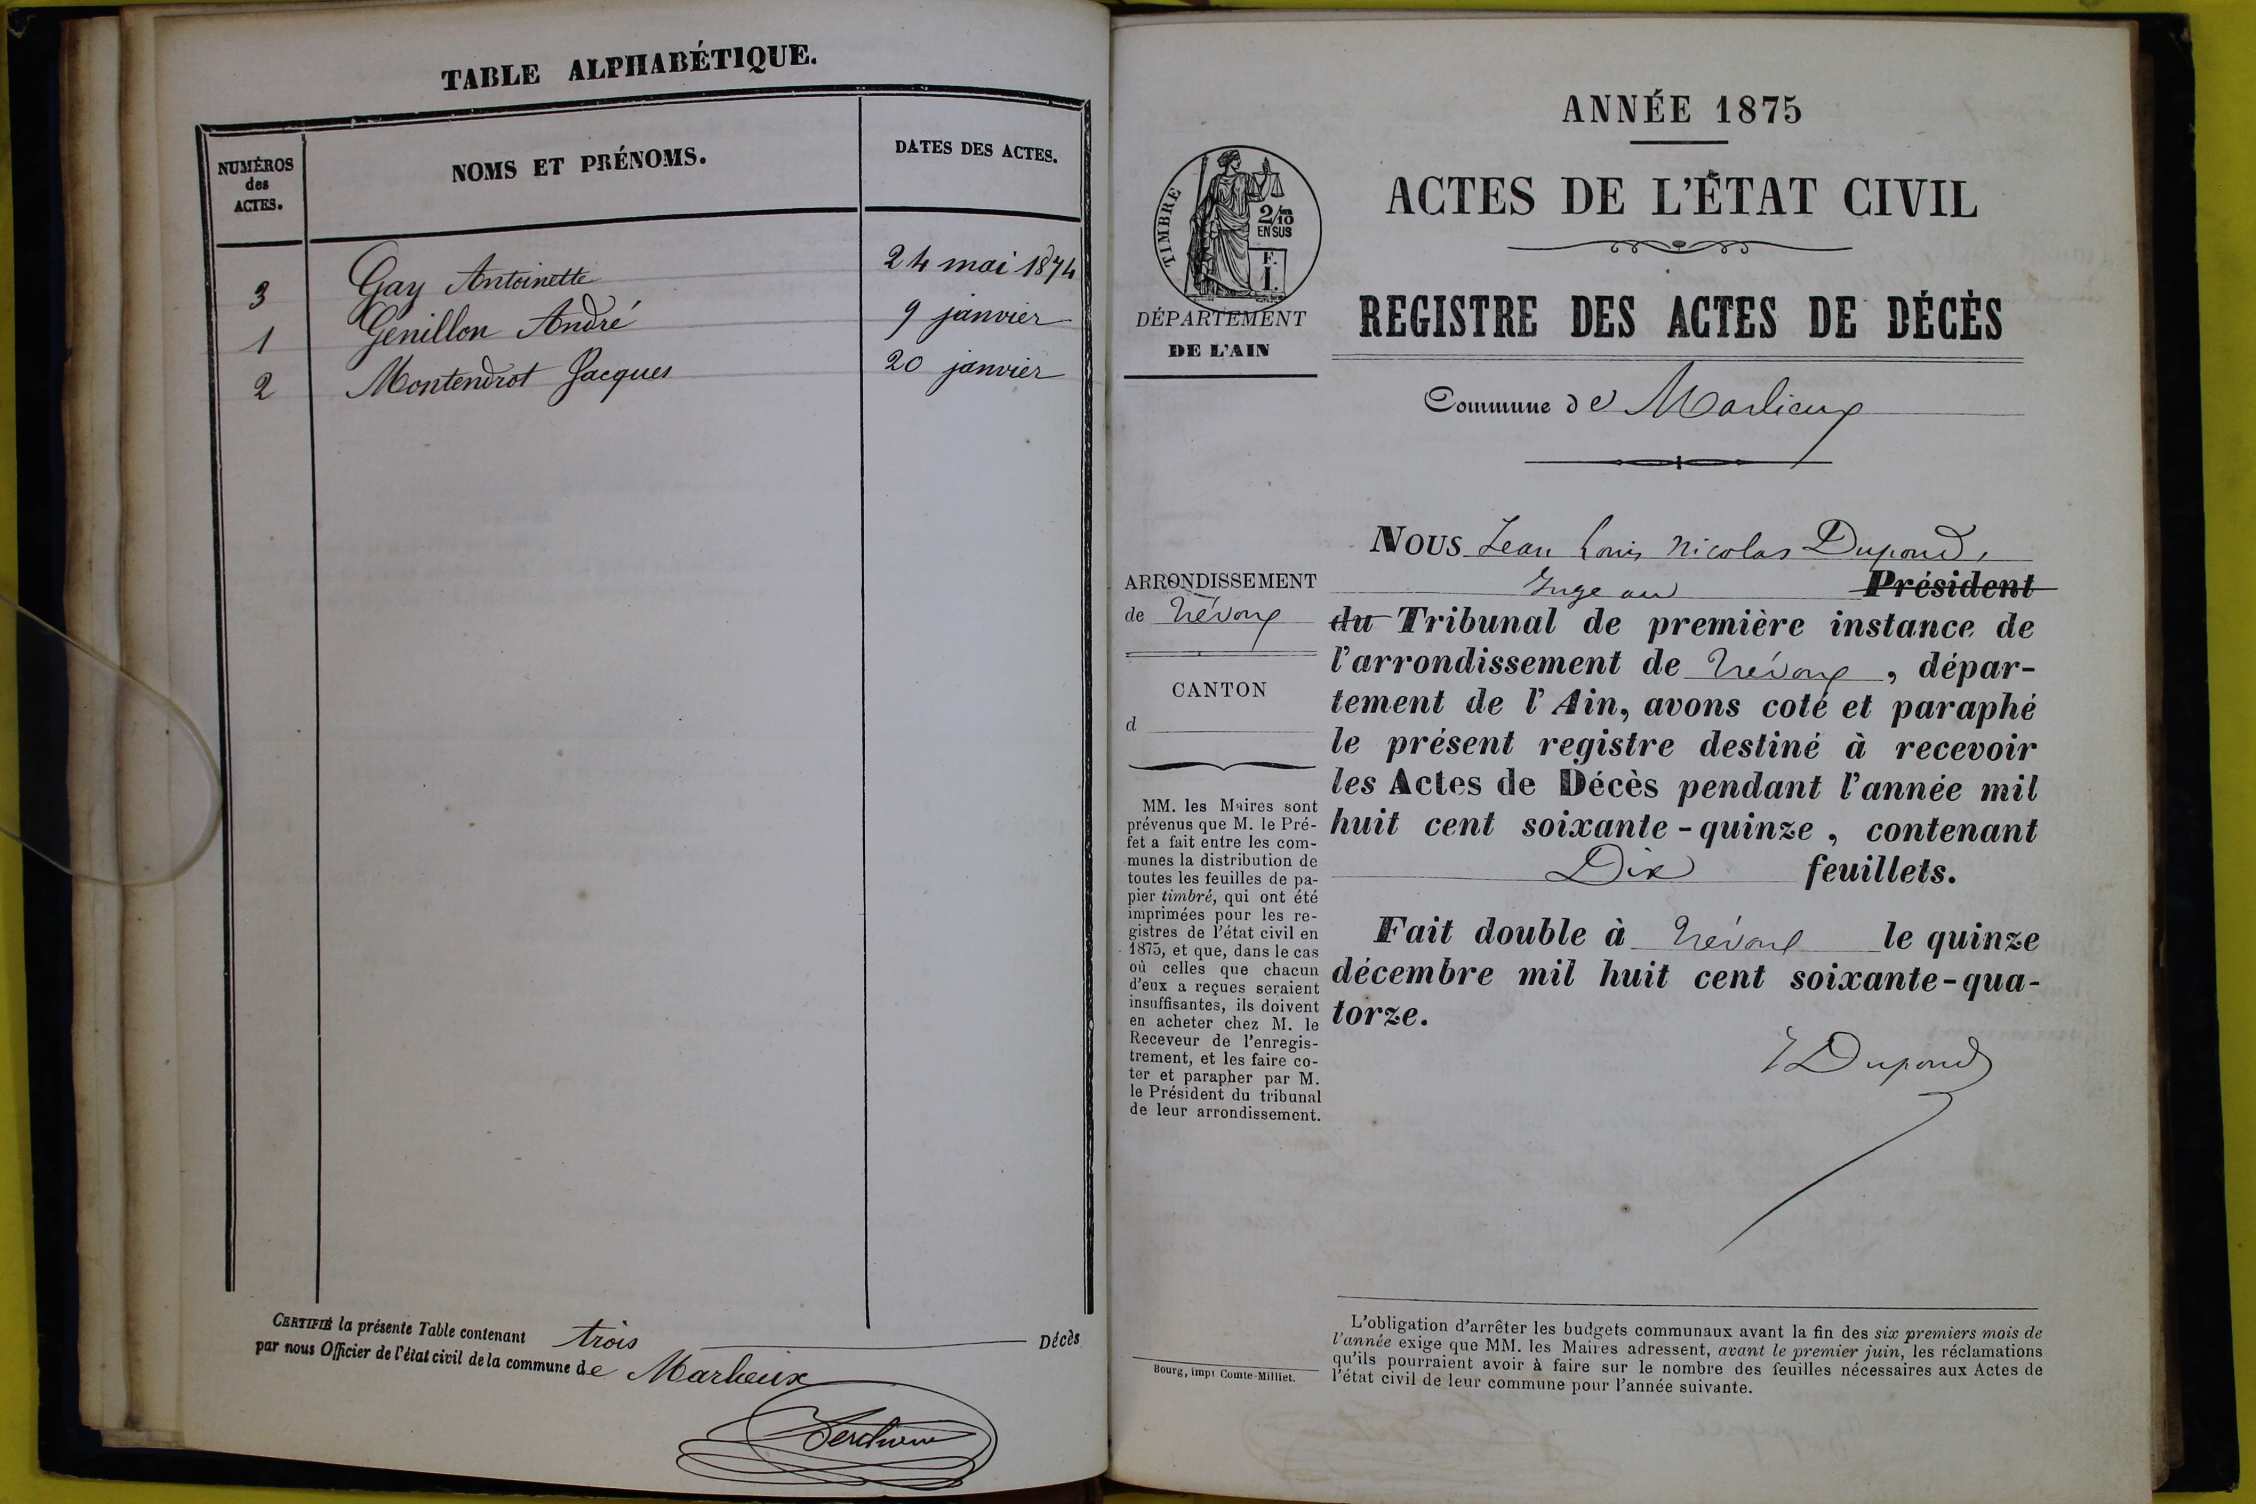 TABLE ALPHABÉTIQUE.
NUMÉROS
des
ACTES.
NOMS ET PRÉNOMS.
DATES DES ACTES.
3 Gay Antoinette 24 mai 1874
1 Genillon André 9 janvier
2 Montendrot Jacques 20 janvier
CERTIFIÉ la présente Table contenant trois Décès
par nous Officier de l'état civil de la commune de Marlieux
ANNÉE 1875
ACTES DE L'ÉTAT CIVIL
TIMBRE
2/10
EN SUS
F.
1.
DÉPARTEMENT
DE L'AIN
REGISTRE DES ACTES DE DÉCÈS
Commune de Marlieux
ARRONDISSEMENT
de Trévoux
CANTON
d
MM. les Maires sont
prévenus que M. le Pré-
fet a fait entre les com-
munes la distribution de
toutes les feuilles de pa-
pier timbré, qui ont été
imprimées pour les re-
gistres de l'état civil en
1875, et que, dans le cas
où celles que chacun
d'eux a reçues seraient
insuffisantes, ils doivent
en acheter chez M. le
Receveur de l'enregis-
trement, et les faire co-
ter et parapher par M.
le Président du tribunal
de leur arrondissement.
Bourg, impr Comte-Milliet.
NOUS Jean Louis Nicolas Dupond,
Juge au Président
du Tribunal de première instance de
l'arrondissement de Trévoux, dépar-
tement de l'Ain, avons coté et paraphé
le présent registre destiné à recevoir
les Actes de Décès pendant l'année mil
huit cent soixante-quinze, contenant
Dix feuillets.
Fait double à Trévoux le quinze
décembre mil huit cent soixante-qua-
torze.
Dupond
L'obligation d'arrêter les budgets communaux avant la fin des six premiers mois de
l'année exige que MM. les Maires adressent, avant le premier juin, les réclamations
qu'ils pourraient avoir à faire sur le nombre des feuilles nécessaires aux Actes de
l'état civil de leur commune pour l'année suivante.